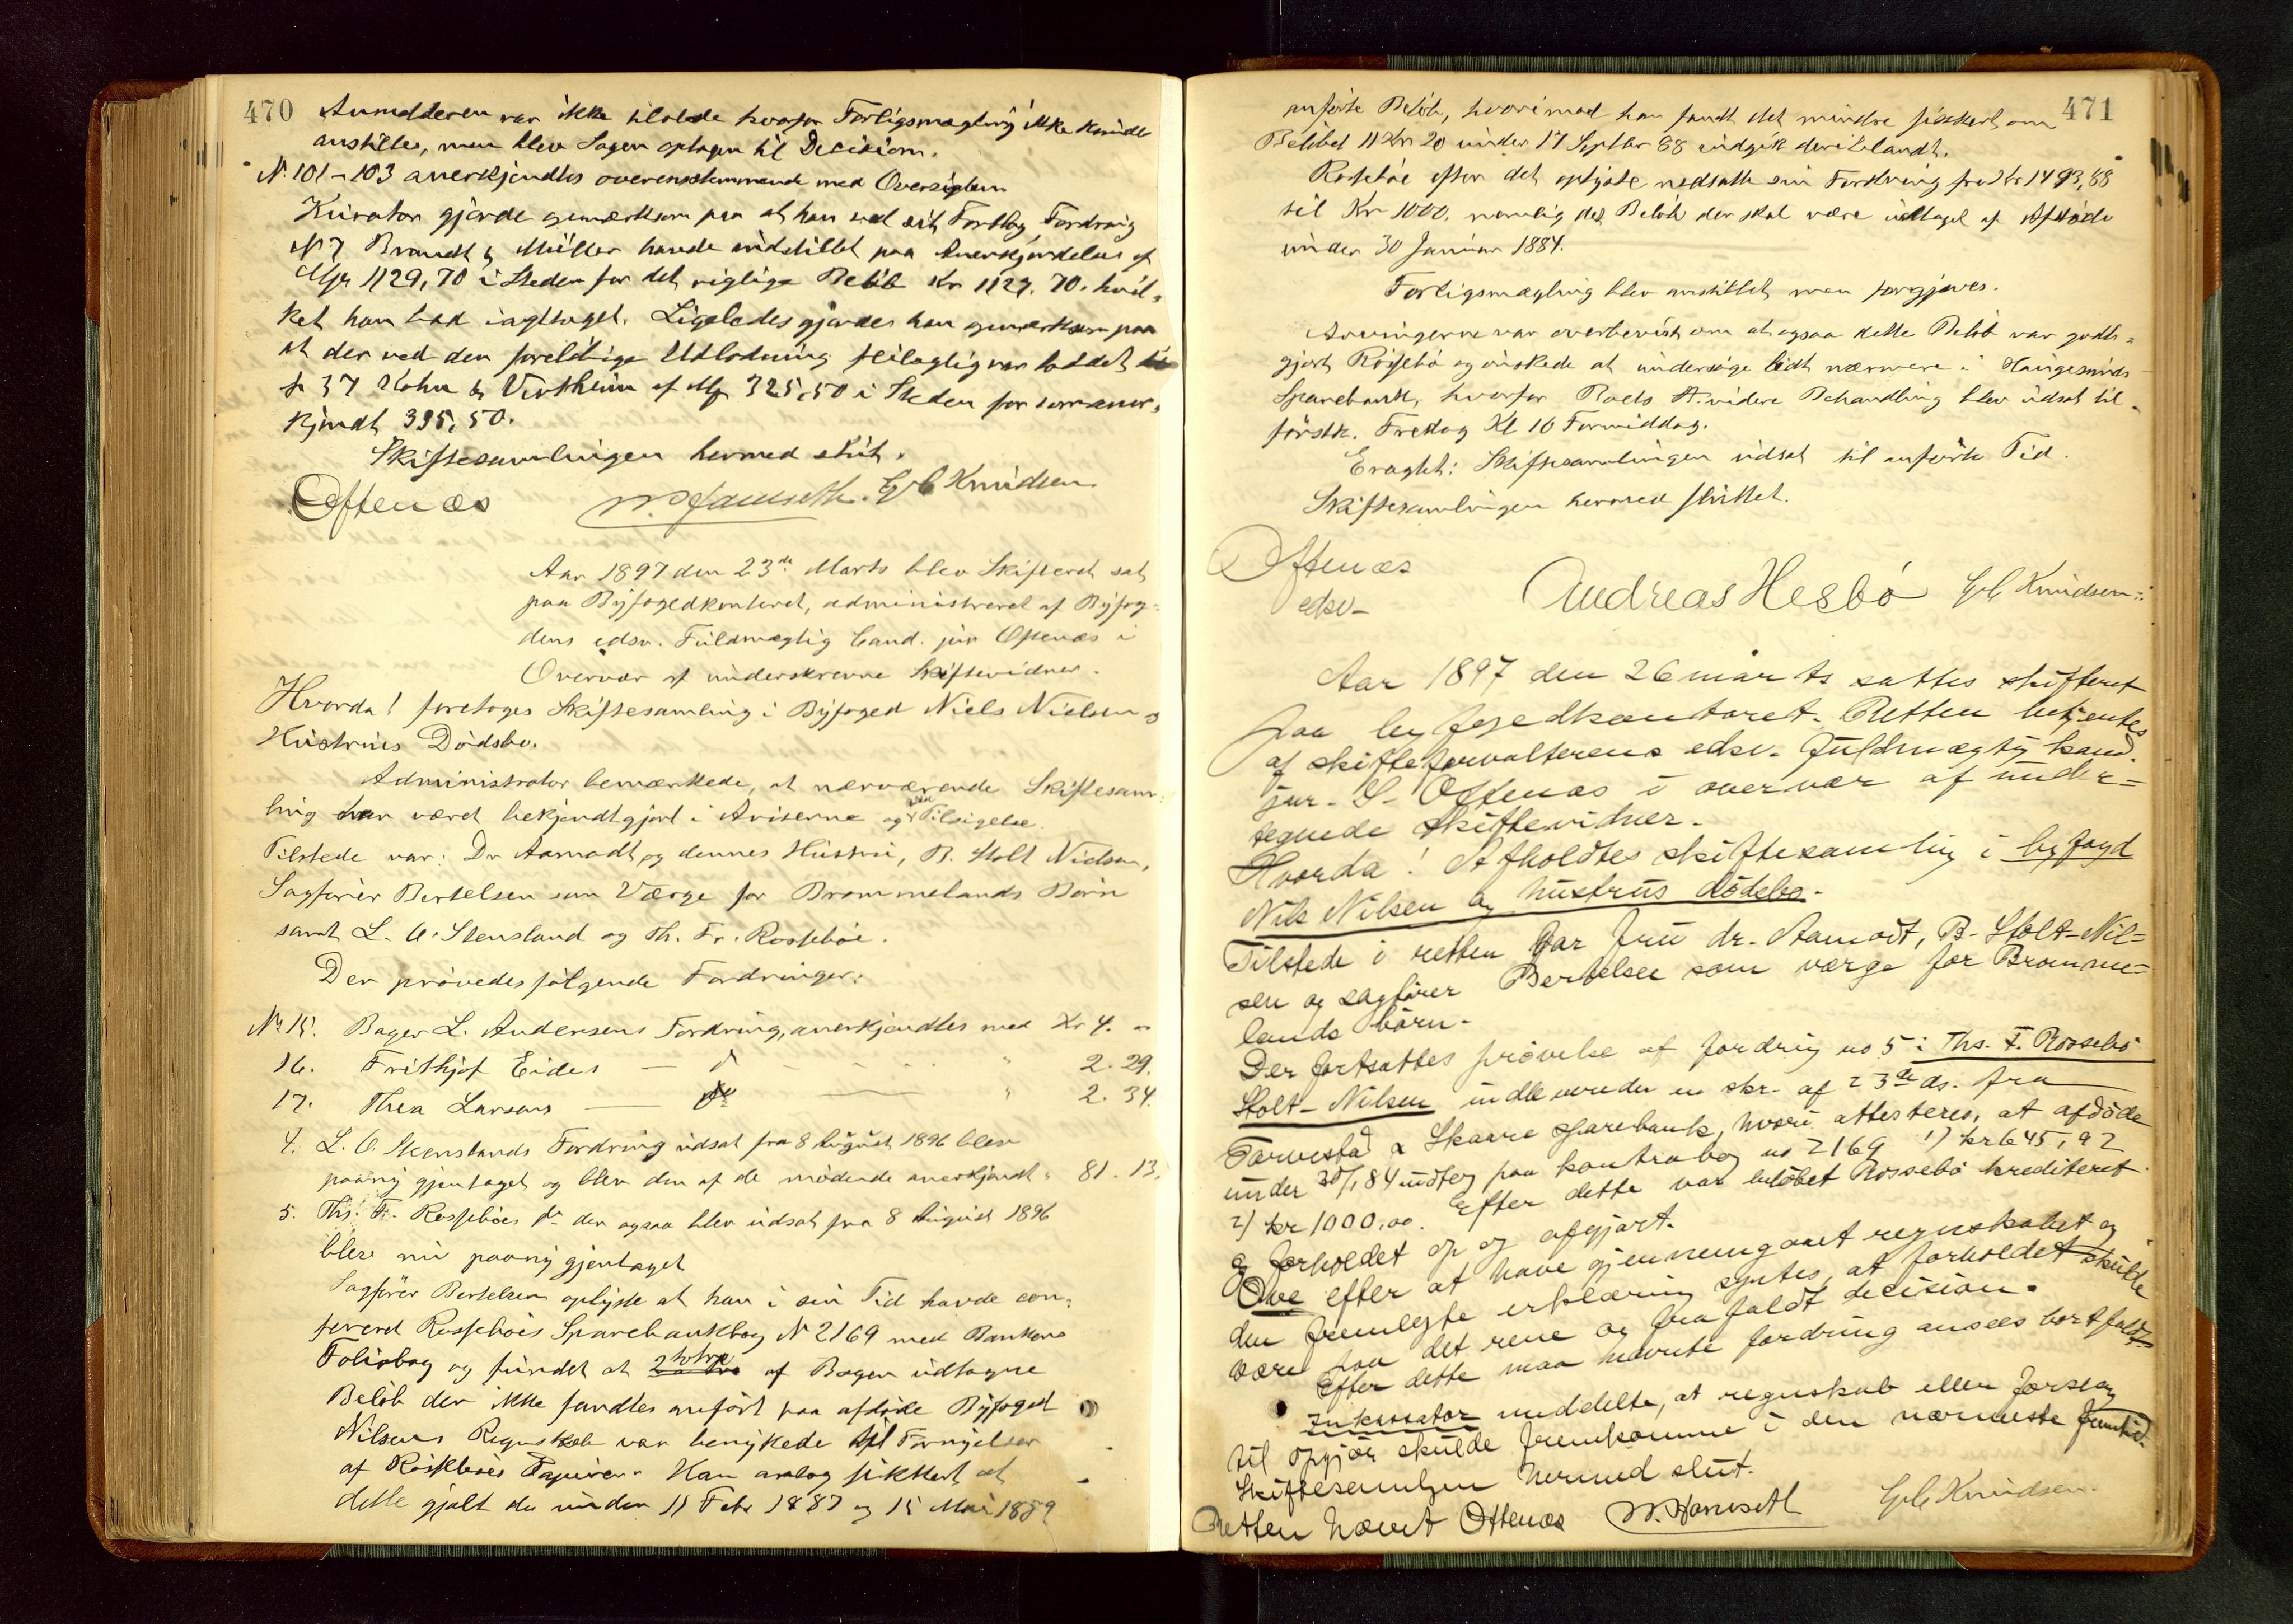 470
Anmelderen var ikke tilstede hvorfor Forligsmægling ikke kunde
anstilles, men blev Sagen optagen til Decision.
N. 101-103 anerkjendtes overensstemmende med Oversigten
Kurator gjorde opmærksom paa at han ved sit Forslag Fordring
N 7 Brandt & Müller havde indstillet paa Anerkjendelse af
1129,70 i Steden for det rigtige Beløb Kr 1127.70. hvil-
ket han bad iagttaget. Ligeledes gjordes han opmærksom paa
at der ved den foreløbige Utlodning feilagtig var loddet
37 Kohn & Virtheim af 325,50 i Steden for som aner-
kjendt 395,50.
Skiftesamlingen hermed slut.
Oftenæs W. Jamseth. G C Knudsen
Aar 1897 den 23de Marts blev Skifteret sat
paa Byfogedkontoret, administreret af Byfog-
dens edsv. Fuldmægtig Cand. jur Oftenæs i
Overvær af underskrevne Skiftevidner.
Hvorda! foretoges Skiftesamling i Byfoged Niels Nielsen &
Hustrues Dødsbo.
Administrator bemærkede, at nærværende Skiftesam-
ling har været bekjendtgjort i Aviserne og ved Tilsigelse.
Tilstede var: Dr Aamodt og dennes Hustru, B. Stolt Nielsen,
Sagfører Bertelsen som Værge for Brommelands Børn
samt L. O. Stensland og Th. Fr. Rossebøe.
Der prøvedes følgende Fordringer:
No 15. Bager L. Andersens Fordring, anerkjendtes med Kr 4. "
16. Frithjof Eides — d " 2.29.
17. Thea Larsens — do — " 2.34.
4. L. O. Stenslands Fordring udsat fra 8 August 1896 blev
paany gjentaget og blev den af de mødende anerkjendt " 81.13.
5. Ths: F. Rossebøes do der ogsaa blev udsat fra 8 August 1896
blev nu paany gjentaget
Sagfører Bertelsen oplyste at han i sin Tid havde con-
fereret Rossebøes Sparebankbog N 2169 med Bankens
Foliobog og fundet at 2 af Bogen udtagne
Beløb der ikke fandtes anført paa afdøde Byfoged
Nilsens Regnskab var benyttede til Fornyelser
af Rossebøes Papirer. Han antog sikkert at
dette gjalt de under 11 Febr 1887 og 15 Mai 1889
471
anførte Beløb, hvorimod han fandt det mindre sikkert om
Beløbet 112 Kr 20 under 17 Septbr 88 indgik deriblandt.
Rossebøe efter det oplyste nedsatte sin Fordring fra Kr 1493,88
til Kr 1000. nemlig det Beløb der skal være udtaget af Afdøde
under 30 Januar 1884.
Forligsmægling blev anstillet men forgjæves.
Arvingerne var overbevist om at ogsaa dette Beløb var godt-
gjort Rossebø og ønskede at undersøge lidt nærmere i Haugesunds
Sparebank, hvorfor videre Behandling blev udsat til
førstk. Fredag Kl 10 Formiddag.
Eragtet: Skiftesamlingen udsat til anførte Tid.
Skiftesamlingen hermed sluttet.
Oftenæs
edsv-
Andreas Hesbø G C Knudsen
Aar 1897 den 26 marts sattes skifteret
paa byfogedkontoret. Retten betjentes
af skifteforvalterens edsv. fuldmægtig kand.
jur. S. Oftenæs i overvær af under-
tegnede skiftevidner.
Hvorda! Afholdtes skiftesamling i byfogd
Nils Nilsen og hustrus dødsbo.
Tilstede i retten var fru dr. Aamodt, B. Stolt-Nil-
sen og sagfører Bertelsen som værge for Bromme-
lands børn.
Der fortsattes prøvelse af fordring no 5: Ths. F. Rossebø
Stolt-Nilsen indleverede en skr. af 23de ds. fra
Torvestad & Skaare sparebank, hvori attesteres, at afdøde
under 30/1 84 udtog paa kontrabog no 2169 1) kr 645,92
2) kr 1000,00. Efter dette var beløbet Rossebø krediteret
og forholdet op og afgjort.
Ove efter at have gjennemgaaet regnskabet og
den fremlagte erklæring syntes, at forholdet skulde
være paa det rene og frafaldt decision.
Efter dette maa nævnte fordring ansees bortfaldt
Inkassator meddelte, at regnskab eller forslag
til opgjør skulde fremkomme i den nærmeste fremtid.
Skiftesamlingen hermed slut.
Retten hævet Oftenæs W. Jamseth G C Knudsen.